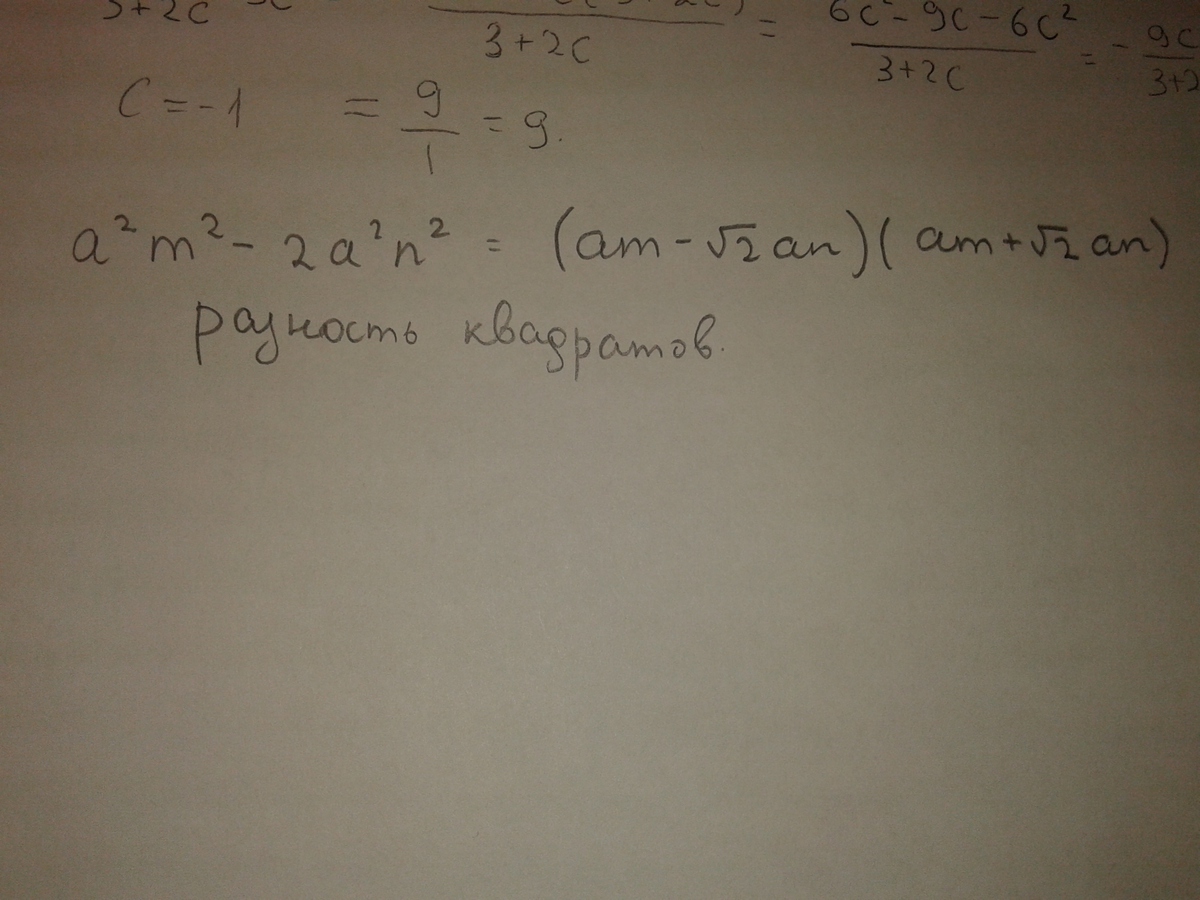 3+2c 3+2c = 6c² - 9c - 6c² / 3+2c = - 9c / 3+2
C = -1 = 9/1 = 9.
a²m² - 2a²n² = (am - √2 an)(am + √2 an)
разность квадратов.